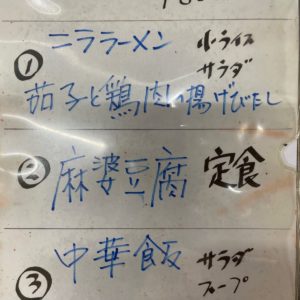 ① ニララーメン 小ライス
サラダ
茄子と鶏肉の揚げびたし
② 麻婆豆腐 定食
③ 中華飯 サラダ
スープ